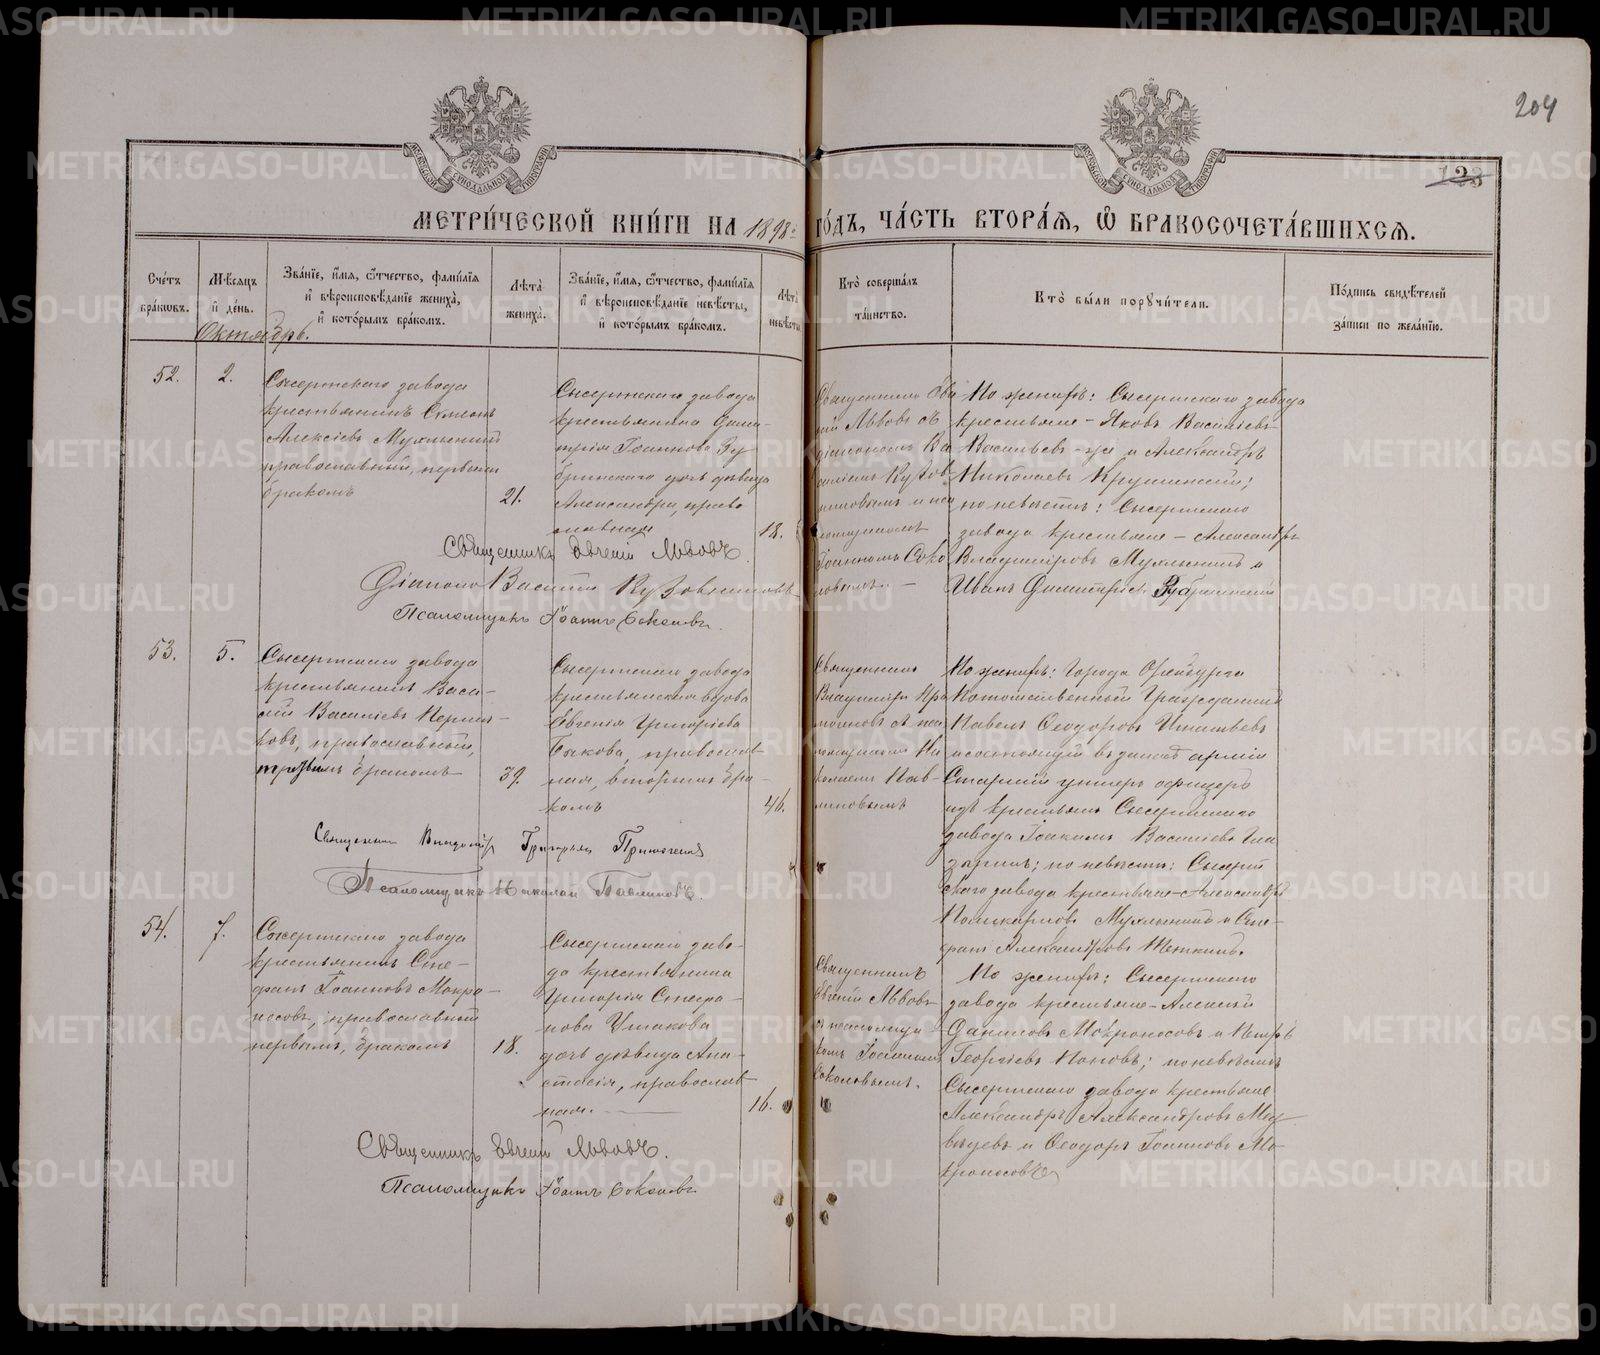 204
123
МЕТРИ́ЧЕСКОЙ КНИ́ГИ НА 1898 го́дъ, ча́сть втора́я, ѡ҆ бракосочета́вшихсѧ.
Сче́тъ бра́ковъ.
Мѣ́сяцъ и҆ де́нь.
Зва́нїе, и҆́мѧ, ѻ҆́тчество, фами́лїѧ и҆ вѣроисповѣ́данїе жениха̀, и҆ кото́рымъ бра́комъ.
Лѣ́та жениха̀.
Зва́нїе, и҆́мѧ, ѻ҆́тчество, фами́лїѧ и҆ вѣроисповѣ́данїе невѣ́сты, и҆ кото́рымъ бра́комъ.
Лѣ́та невѣ́сты
Кто̀ соверша́лъ та́инство.
Кто̀ бы́ли порꙋчи́тели.
По́дпись свидѣ́телей за́писи по жела́нїю.
Октябрь.
52.
2.
Сысертскаго завода
крестьянинъ Симеонъ
Алексіевъ Мухлынинъ
православный, первымъ
бракомъ
21.
Сысертскаго завода
крестьянина Дими-
трія Іоаннова Зу
бринскаго дочь девица
Александра, право
славная
18.
Священникъ Евге
ній Львовъ съ
діакономъ Ва
силіемъ Кузов
никовымъ и пса
ломщикомъ
Іоанномъ Соко
ловымъ. –
По женихѣ: Сысертскаго завода
крестьяне – Яковъ Василіевъ
Васильевъ-же и Александръ
Николаевъ
по невѣстѣ: Сысертскаго
завода крестьяне – Александръ
Владиміровъ Мухлынинъ и
Иванъ Димитріевъ Зубринскій
Священникъ Евгеній Львовъ.
Діаконъ Василій Кузовниковъ
Псаломщикъ Іоаннъ Соколовъ.
53.
5.
Сысертскаго завода
крестьянинъ Васи-
лій Василіевъ Перми-
ковъ, православный,
третьимъ бракомъ
39.
Сысертскаго завода
крестьянская вдова
Евгенія Григоріева
Быкова, православ
ная, вторымъ бра-
комъ
46.
Священникъ
Владиміръ
съ пса
ломщикомъ Ни
колаемъ Пав-
линовымъ
По женихѣ: Города Оренбурга
Потомственный Гражданинъ
Павелъ Ѳеодоровъ
и состоящій въ запасѣ арміи
Старшій унтеръ офицеръ
изъ крестьянъ Сысертскаго
завода Іоакимъ Василіевъ Гла
заринъ; по невѣстѣ: Сысерт
скаго завода крестьяне – Александръ
Поликарповъ Мухлынинъ и Сте-
фанъ Александровъ
Священникъ Владиміръ Григорьевъ
Псаломщикъ Николай Павлиновъ.
54.
7.
Сысертскаго завода
крестьянинъ Сте-
фанъ Іоанновъ Мокро-
носовъ, православный
первымъ, бракомъ
18.
Сысертскаго заво-
да крестьянина
Григорія Стефа-
нова Ушакова
дочь дѣвица Ана-
стасія, православ
ная.
16.
Священникъ
Евгеній Львовъ
съ псаломщи
комъ Іоанномъ
Соколовымъ.
По женихѣ: Сысертскаго
завода крестьяне – Алексѣй
Даниловъ Мокроносовъ и Петръ
Георгіевъ Поповъ; по невѣстѣ
Сысертскаго завода крестьяне
Александръ Александровъ Мед
вѣдевъ и Ѳеодоръ Іоанновъ Мо-
кроносовъ
Священникъ Евгеній Львовъ.
Псаломщикъ Іоаннъ Соколовъ
METRIKI.GASO-URAL.RU